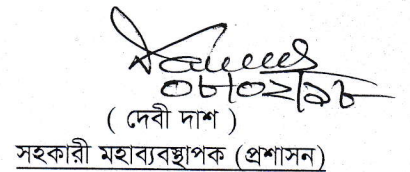 ০৮/০২/১৮
( দেবী দাশ )
সহকারী মহাব্যবস্থাপক (প্রশাসন)